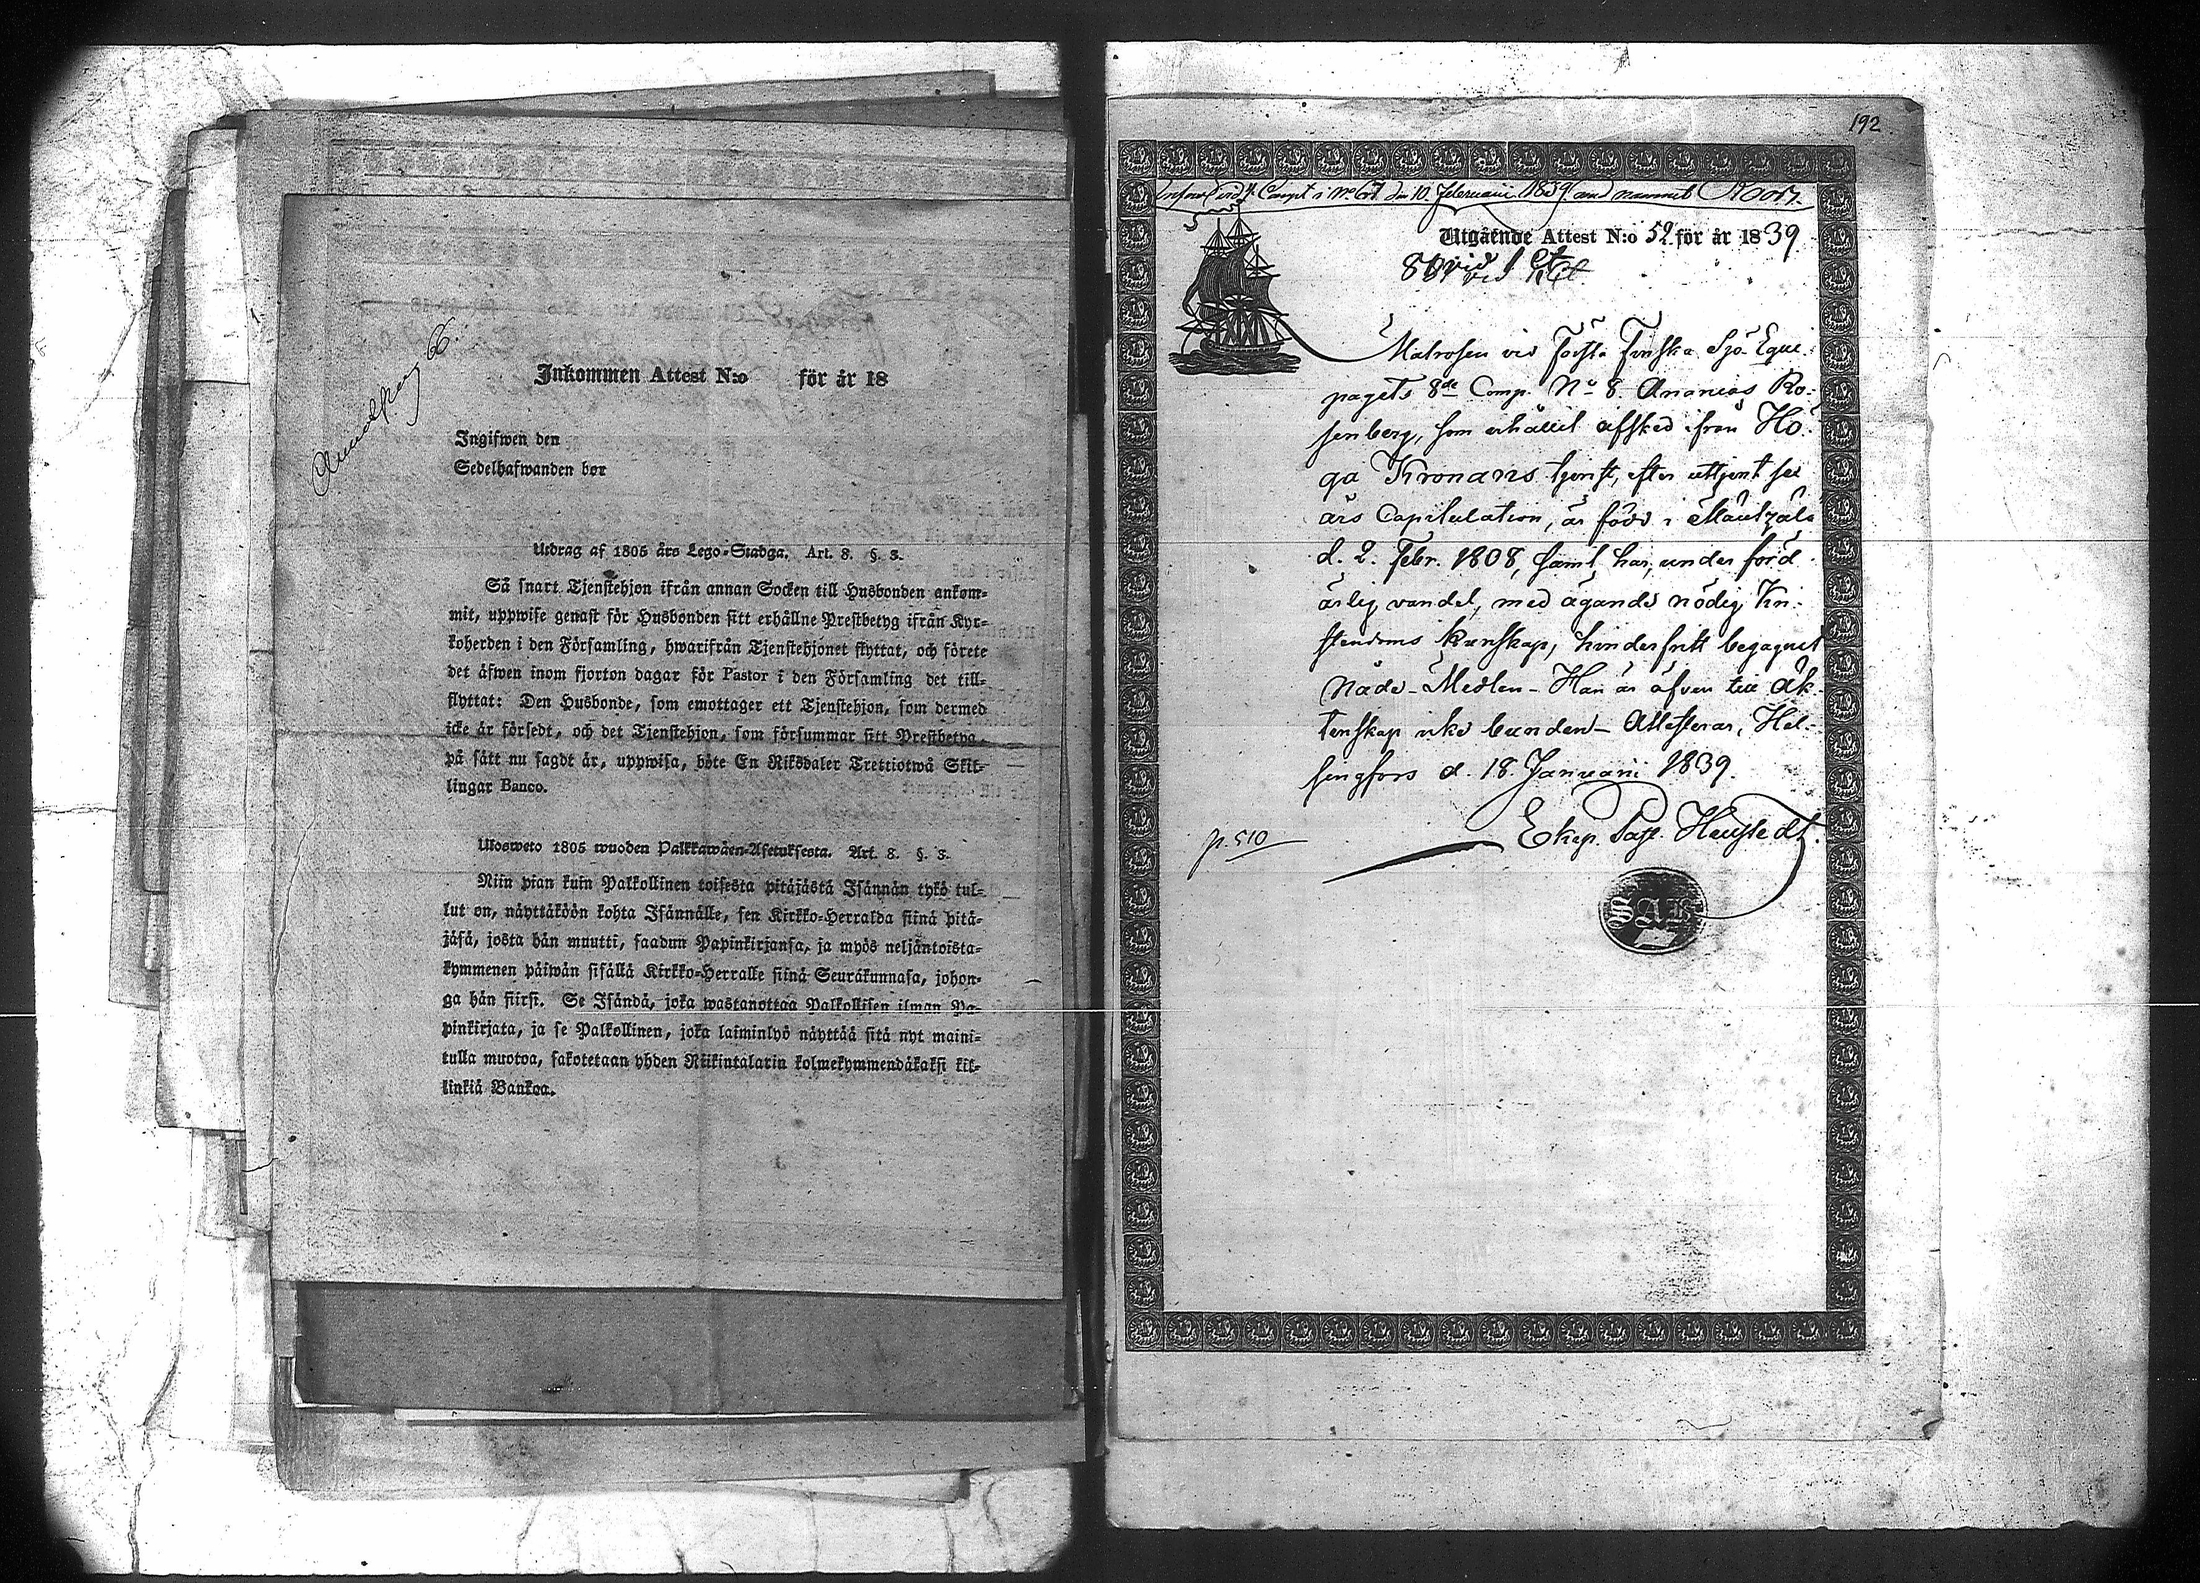 Inkommen Attest N:o för år 18
Ingifwen den
Sedelhafwanden bor
Utdrag af 1805 års Lego-Stadga. Art. 8. §. 3.
Så snart Tjenstehjon ifrån annan Socken till Husbonden ankom-
mit, uppwise genast för Husbonden sitt erhållne Prestbetyg ifrån Kyr-
koherden i den Församling, hwarifrån Tjenstehjonet flyttat, och förete
det äfwen inom fjorton dagar för Pastor i den Församling det till-
flyttat: Den Husbonde, som emottager ett Tjenstehjon, som dermed
icke är försedt, och det Tjenstehjon, som försummar sitt Prestbetyg,
på sätt nu sagdt är, uppwisa, böte En Riksdaler Trettiotwå Skil-
lingar Banco.
Ulosweto 1805 wuoden Palkkawäen-Asetuksesta. Art. 8. §. 3.
Niin pian kuin Palkollinen toisesta pitäjästä Isännän tykö tul-
lut on, näyttäköön kohta Isännälle, sen Kirkko-Herralda siinä pitä-
jäsä, josta hän muutti, saadun Papinkirjansa, ja myös neljäntoista-
kymmenen päiwän sisällä Kirkko-Herralle siinä Seurakunnasa, johon-
ga hän siirsi. Se Isändä, joka wastanottaa Palkollisen ilman Pa-
pinkirjata, ja se Palkollinen, joka laiminlyö näyttää sitä nyt maini-
tulla muotoa, sakotetaan yhden Riikintalarin kolmekymmendäkaksi kil-
linkiä Bankoa.
192
Compt i No 67 den 10 Februarii 1839 med namnet Roos.
Utgående Attest N:o 52 för år 1839
Matrosen vid Första Finska Sjö-Equi-
pagets 8de Comp. No 8. Ananias Ro-
senberg, som erhållit afsked ifrån Hö-
ga Kronans tjenst, efter uttjent sex
års Capitulation, är född i Mäntzälä
d. 2. Febr. 1808, samt har, under förd
ärlig vandel, med ägande nödig Kri-
stendoms kunskap, hinderfritt begagnat
Nåde-Medlen - Han är äfven till Äk-
tenskap icke bunden - Attesterar, Hel-
singfors d. 18. Januarii 1839.
p. 510
SAB